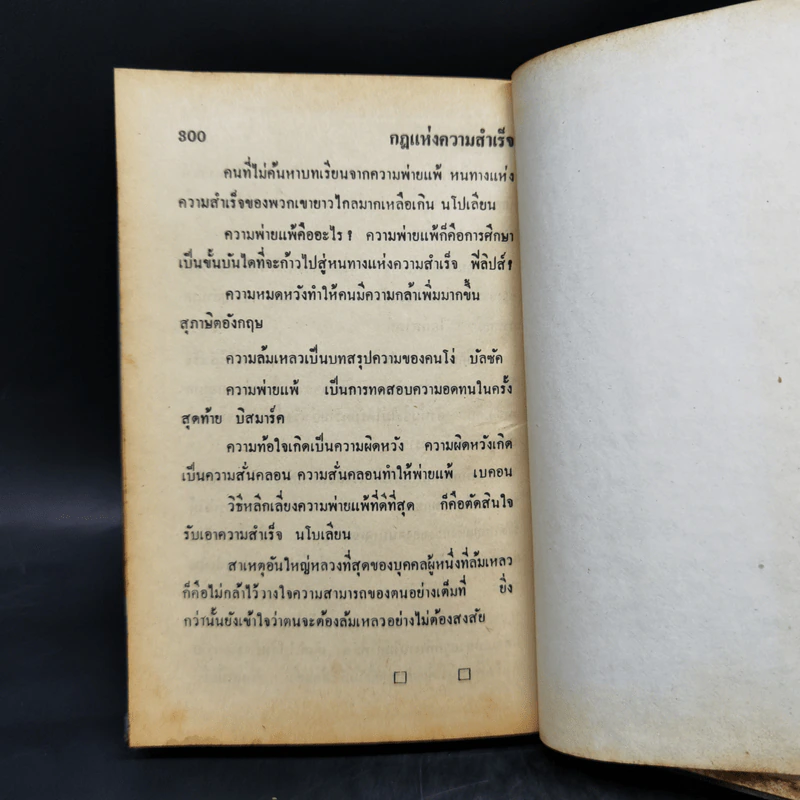 300 กฎแห่งความสำเร็จ
คนที่ไม่ค้นหาบทเรียนจากความพ่ายแพ้ หนทางแห่ง
ความสำเร็จของพวกเขายาวไกลมากเหลือเกิน นโปเลียน
ความพ่ายแพ้คืออะไร? ความพ่ายแพ้ก็คือการศึกษา
เป็นขั้นบันไดที่จะก้าวไปสู่หนทางแห่งความสำเร็จ ฟีลิปส์?
ความหมดหวังทำให้คนมีความกล้าเพิ่มมากขึ้น
สุภาษิตอังกฤษ
ความล้มเหลวเป็นบทสรุปความของคนโง่ บัลซัค
ความพ่ายแพ้ เป็นการทดสอบความอดทนในครั้ง
สุดท้าย บิสมาร์ค
ความท้อใจเกิดเป็นความผิดหวัง ความผิดหวังเกิด
เป็นความสั่นคลอน ความสั่นคลอนทำให้พ่ายแพ้ เบคอน
วิธีหลีกเลี่ยงความพ่ายแพ้ที่ดีที่สุด ก็คือตัดสินใจ
รับเอาความสำเร็จ นโบเลียน
สาเหตุอันใหญ่หลวงที่สุดของบุคคลผู้หนึ่งที่ล้มเหลว
ก็คือไม่กล้าไว้วางใจความสามารถของตนอย่างเต็มที่ ยิ่ง
กว่านั้นยังเข้าใจว่าตนจะต้องล้มเหลวอย่างไม่ต้องสงสัย